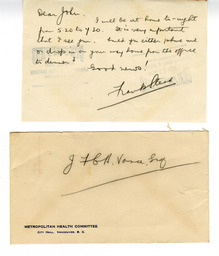 Dear John,
I will be at home to-night
from 5.20 to 7.20. It is very important
that I see you. Could you either phone me
or drop in on your way home from the office
to dinner?
Good news!
J F C B Vance, Esq
METROPOLITAN HEALTH COMMITTEE
CITY HALL, VANCOUVER, B. C.